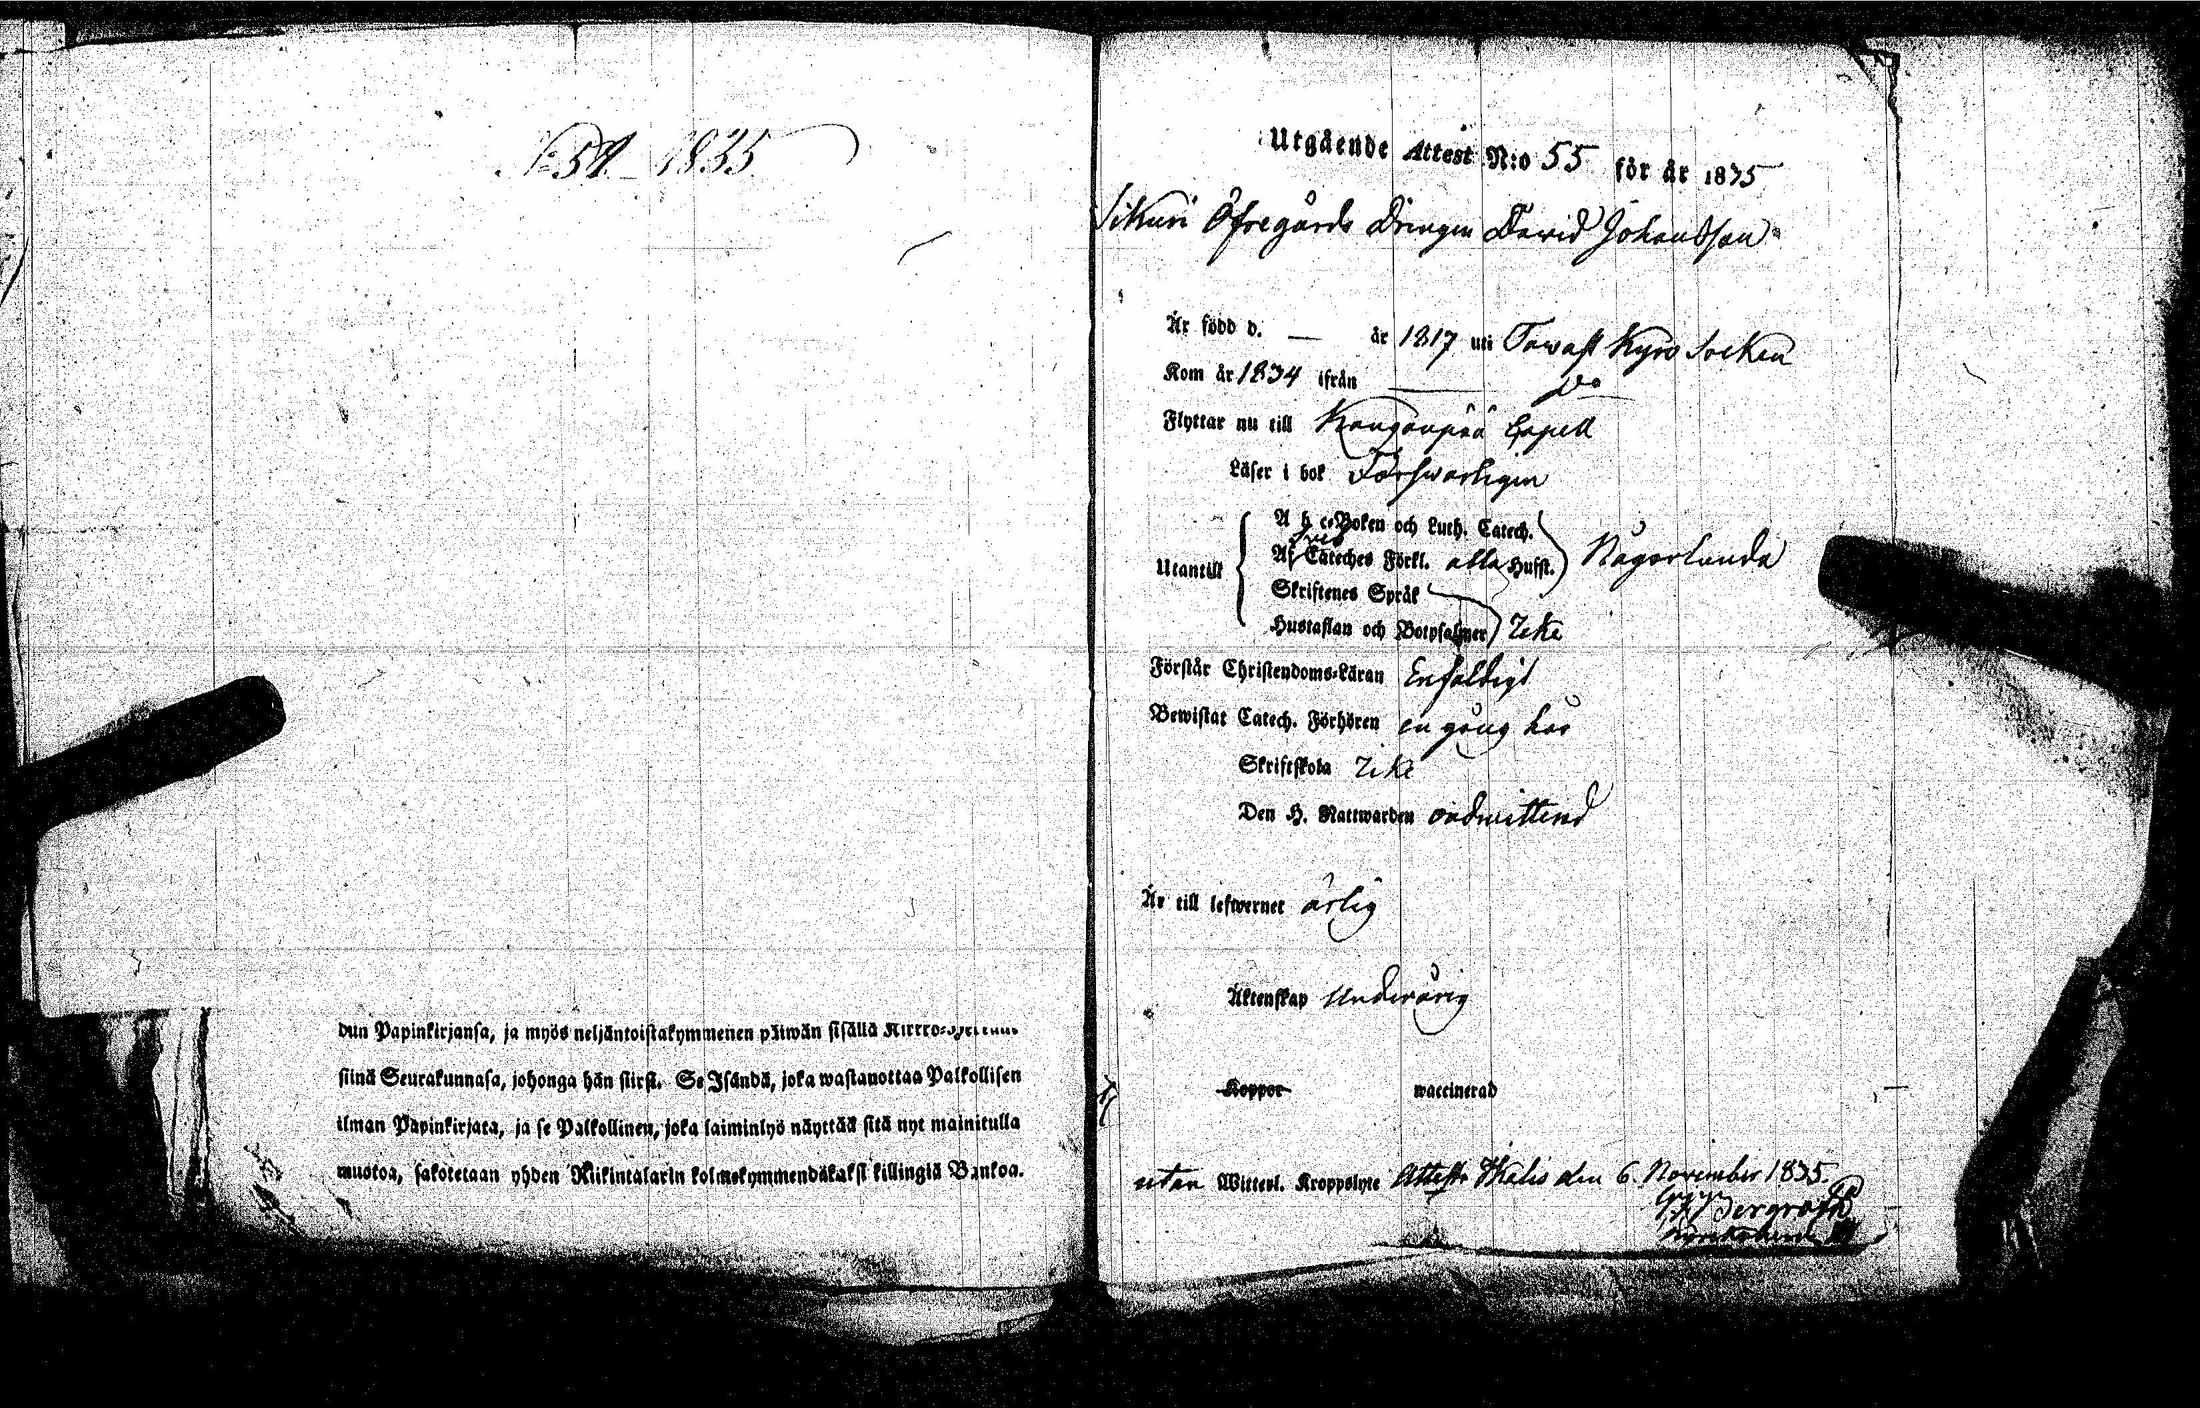 N:o 54 1835
dun Papinkirjansa, ja myös neljäntoistakymmenen päiwän sisällä
siinä Seurakunnasa, johonga hän siirst. Se Isändä, joka wastanottaa Palkollisen
ilman Papinkirjata, ja se Palkollinen, joka laiminlyö näyttää sitä nyt mainitulla
muotoa, sakotetaan yhden Riikintalarin kolmekymmendäkaksi killingiä Bankoa.
Utgående Attest N:o 55 för år 1835
Sikuri Öfregårds Drengen David Johansson
Är född d. — år 1817 uti Tavast Kyro Socken
Kom år 1834 ifrån — Do
Flyttar nu till Kanganpää Capell
Läser i bok Försvarligen
A b c-Boken och Luth. Catech.
Utantill Af Sveb Cateches Förkl. alla Hufst. Någorlunda
Skriftenes Språk
Hustaflan och Botpsalmer Icke
Förstår Christendoms-Läran Enfaldigt
Bewistat Catech. Förhören en gång här
Skriftskola Icke
Den H. Nattwarden oadmitterad
Är till lefwernet ärlig
Äktenskap Underårig
Koppor waccinerad
utan Witterl. Kroppslyte Attest. Ikalis den 6. November 1835.
Bergroth